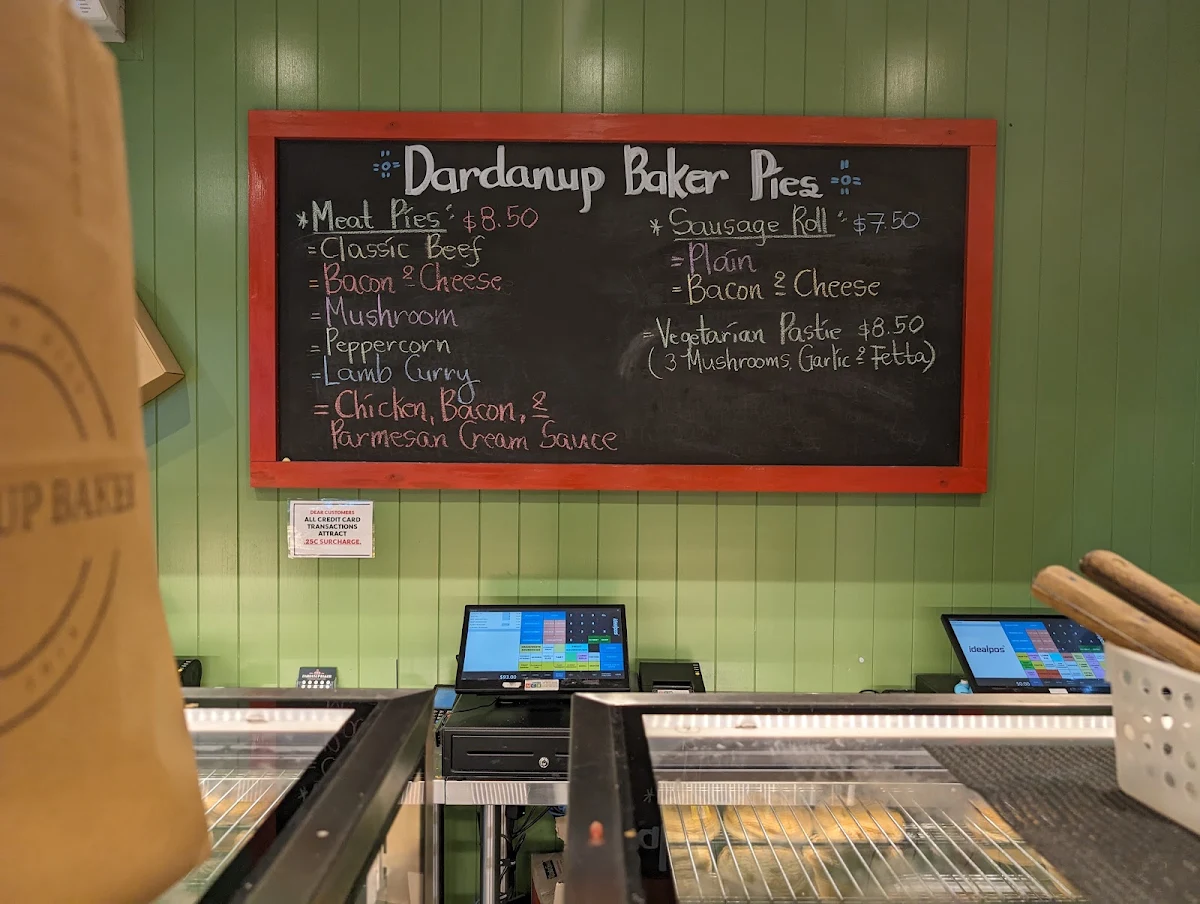 Dardanup Baker Pies
* Meat Pies: $8.50
= Classic Beef
= Bacon & Cheese
= Mushroom
= Peppercorn
= Lamb Curry
= Chicken, Bacon, &
Parmesan Cream Sauce
* Sausage Roll: $7.50
= Plain
= Bacon & Cheese
= Vegetarian Pastie $8.50
(3 Mushrooms, Garlic & Fetta)
UP BAKER
DEAR CUSTOMERS
ALL CREDIT CARD
TRANSACTIONS
ATTRACT
.25C SURCHARGE.
$93.00
idealpos
idealpos
$0.00